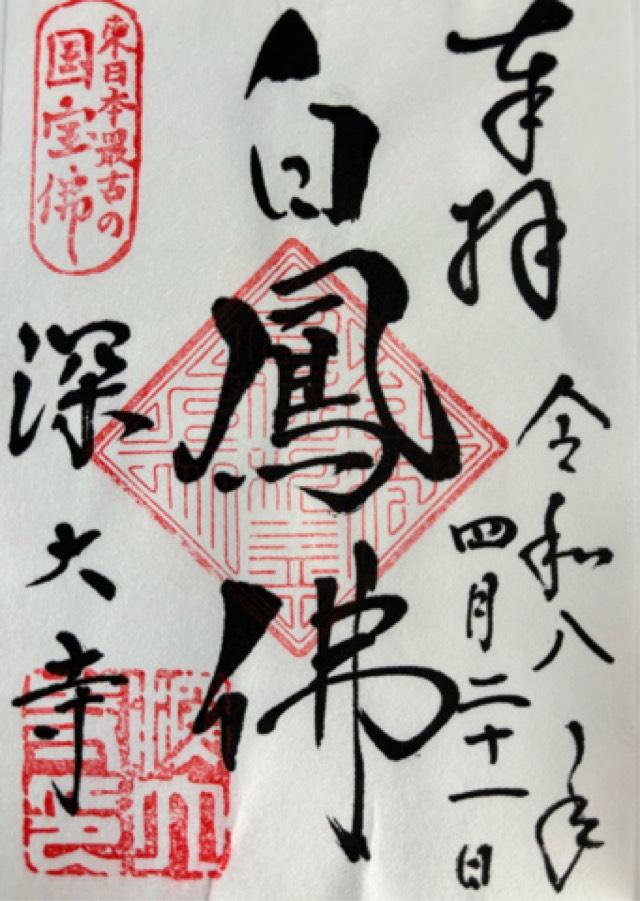 奉拝
令和八年
四月二十一日
白鳳佛
東日本最古の
国宝佛
深大寺